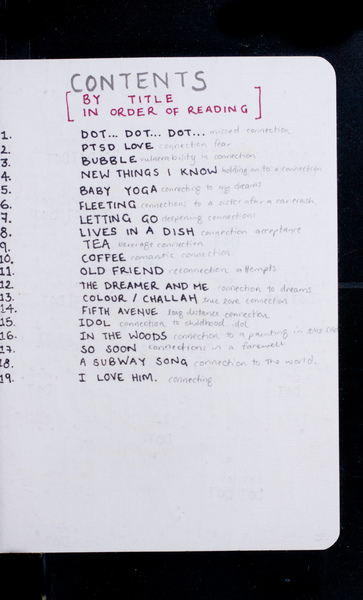 CONTENTS
[BY TITLE
IN ORDER OF READING]
1. DOT... DOT... DOT... missed connection
2. PTSD LOVE connection fear
3. BUBBLE vulnerability in connection
4. NEW THINGS I KNOW holding on to a connection
5. BABY YOGA connecting to dreams
6. FLEETING connections to a sister after a car crash
7. LETTING GO deepening connections
8. LIVES IN A DISH connection acceptance
9. TEA beverage connection
10. COFFEE romantic connection
11. OLD FRIEND reconnection attempts
12. THE DREAMER AND ME connection to dreams
13. COLOUR / CHALLAH true love connection
14. FIFTH AVENUE long distance connection
15. IDOL connection to childhood idol
16. IN THE WOODS connection to a painting in the
17. SO SOON connections in a farewell
18. A SUBWAY SONG connection to the world.
19. I LOVE HIM. connecting